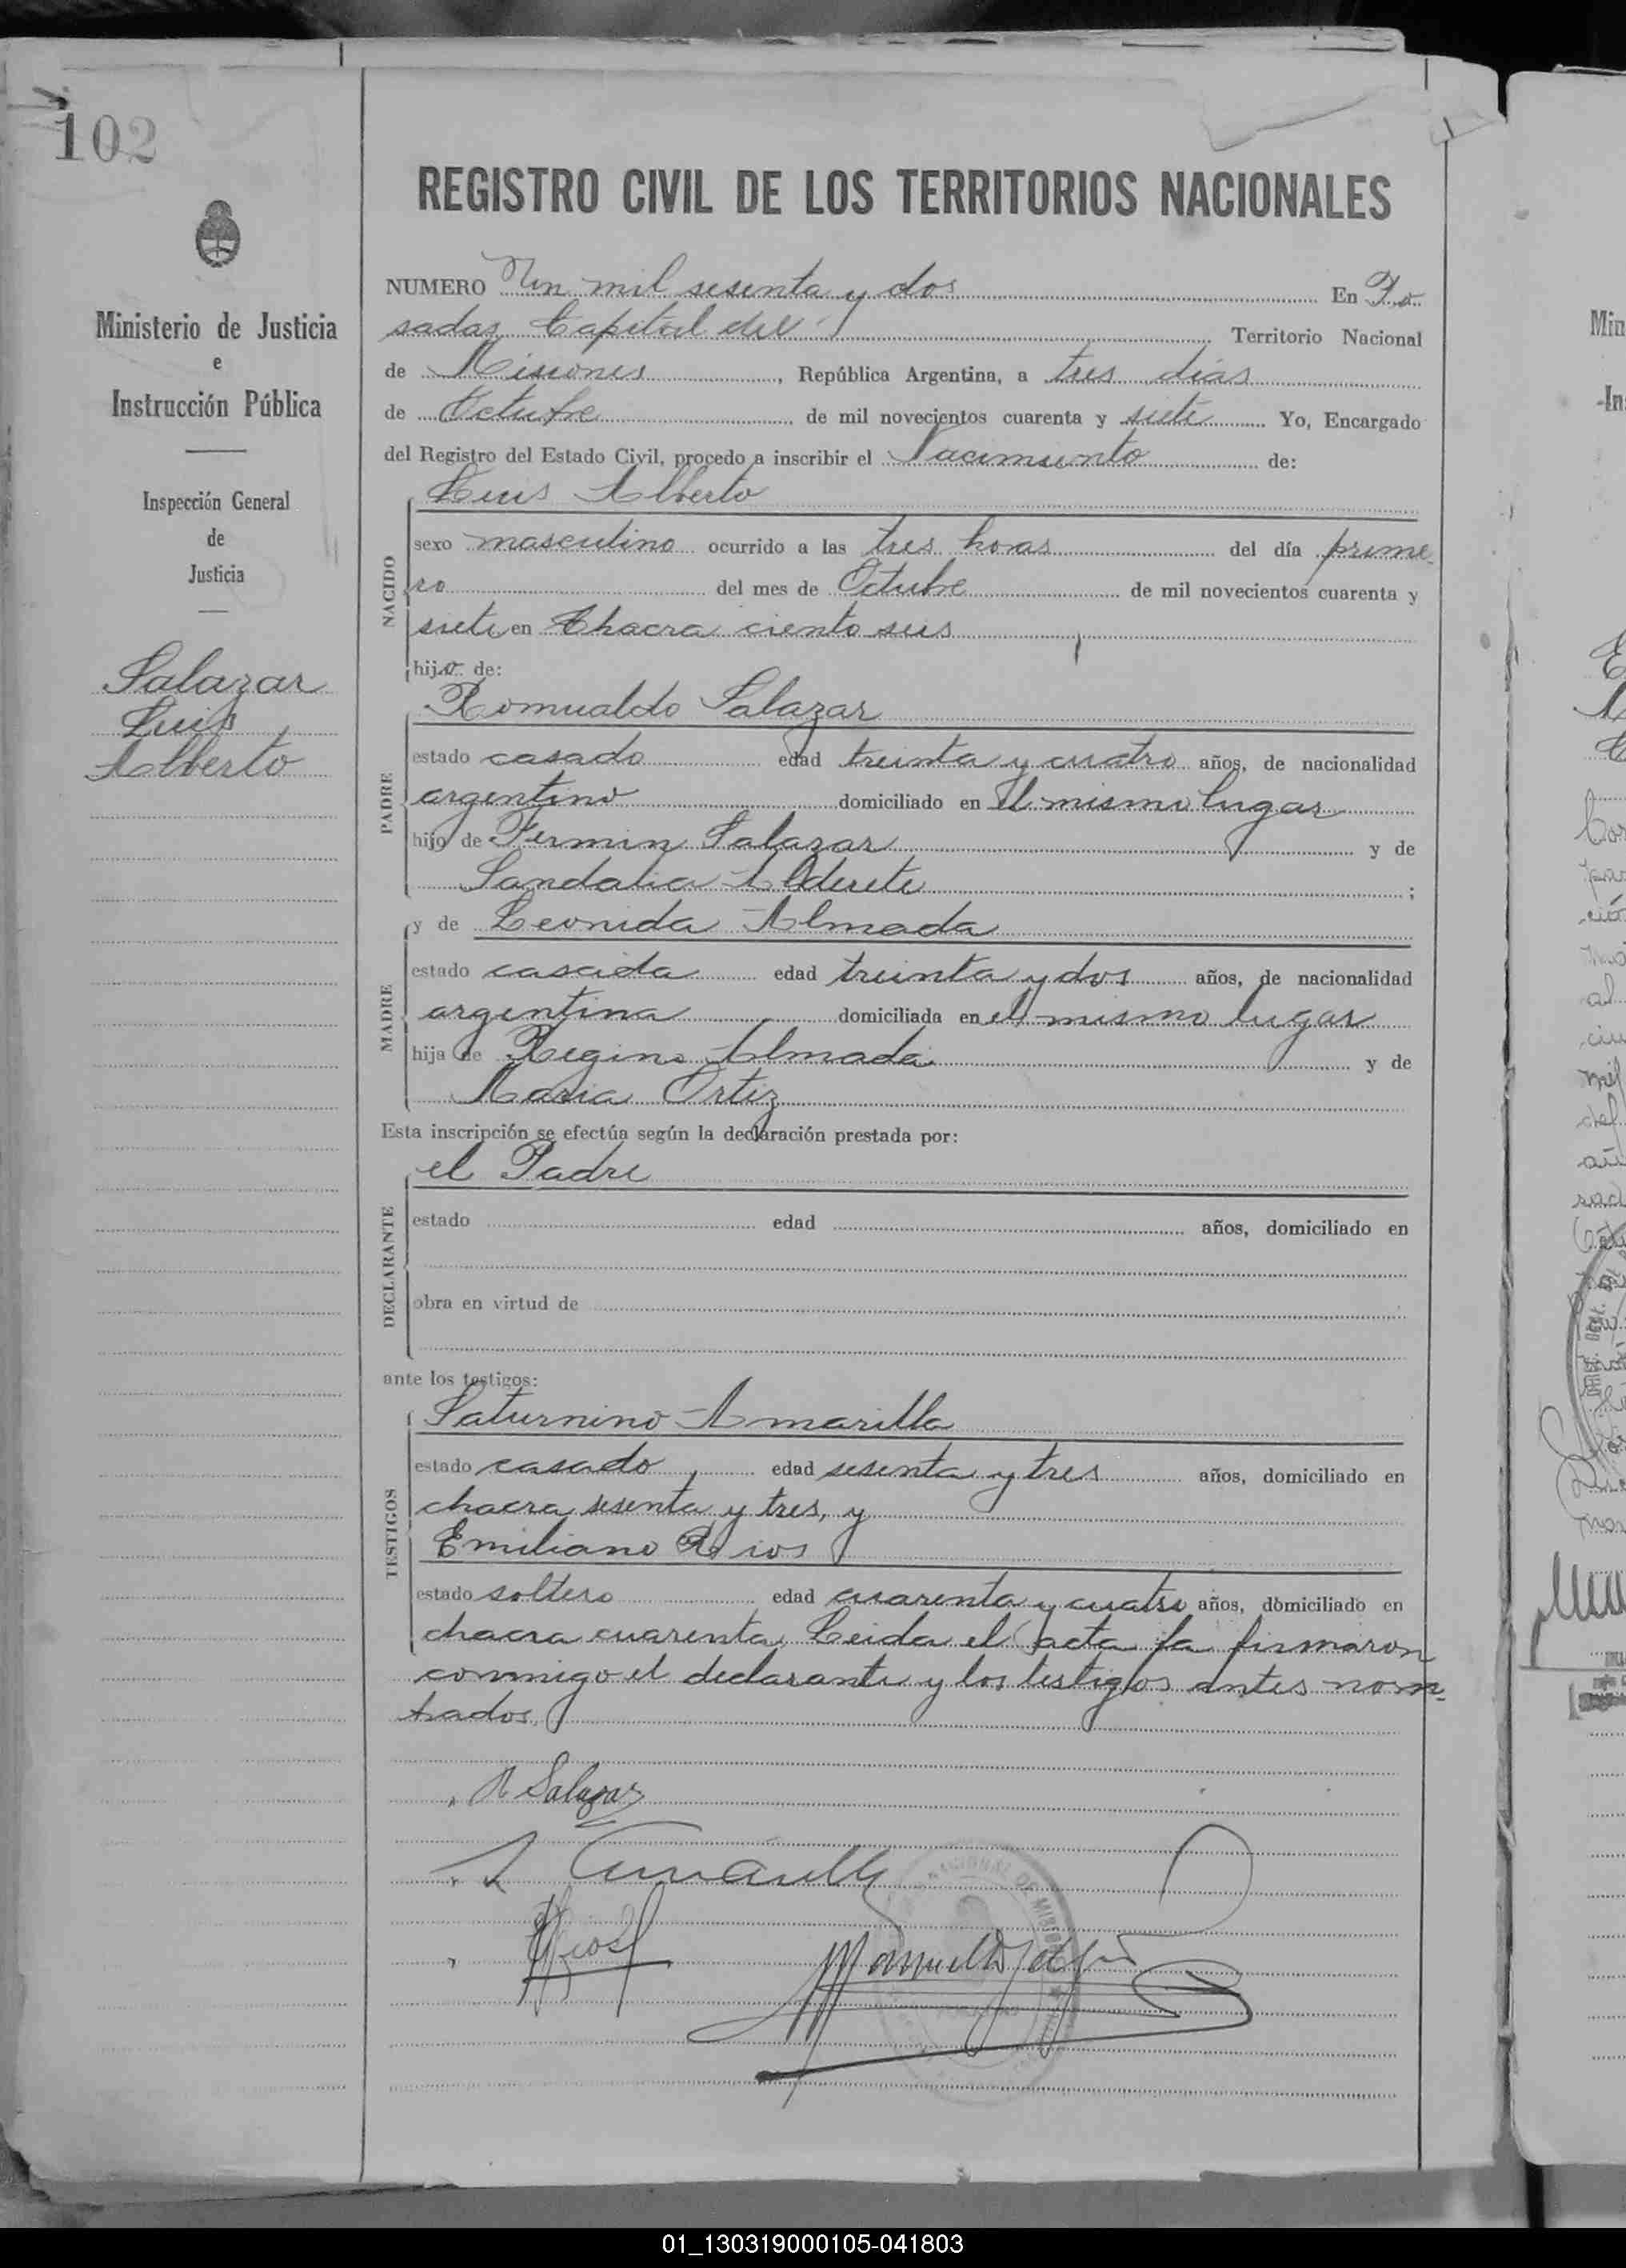 102
Ministerio de Justicia
e
Instrucción Pública
Inspección General
de
Justicia
Salazar
Luis
Alberto
REGISTRO CIVIL DE LOS TERRITORIOS NACIONALES
NUMERO Un mil sesenta y dos En Po
sadas Capital del Territorio Nacional
de Misiones, República Argentina, a tres dias
de Octubre de mil novecientos cuarenta y siete Yo, Encargado
del Registro del Estado Civil, procedo a inscribir el Nacimiento de:
NACIDO
Luis Alberto
sexo masculino ocurrido a las tres horas del día prime
ro del mes de Octubre de mil novecientos cuarenta y
siete en Chacra ciento seis
hijo de:
PADRE
Romualdo Salazar
estado casado edad treinta y cuatro años, de nacionalidad
argentino domiciliado en el mismo lugar
hijo de Fermin Salazar y de
Sandalia Alderete;
MADRE
y de Leonida Almada
estado casada edad treinta y dos años, de nacionalidad
argentina domiciliada en el mismo lugar
hija de Regino Almada y de
Maria Ortiz
Esta inscripción se efectúa según la declaración prestada por:
DECLARANTE
el Padre
estado edad años, domiciliado en
obra en virtud de
ante los testigos:
TESTIGOS
Saturnino Amarilla
estado casado edad sesenta y tres años, domiciliado en
chacra sesenta y tres, y
Emiliano Rios
estado soltero edad cuarenta y cuatro años, domiciliado en
chacra cuarenta. Leida el acta la firmaron
conmigo el declarante y los testigos antes nom-
brados.
R Salazar
S Amarilla
Rios
01_130319000105-041803